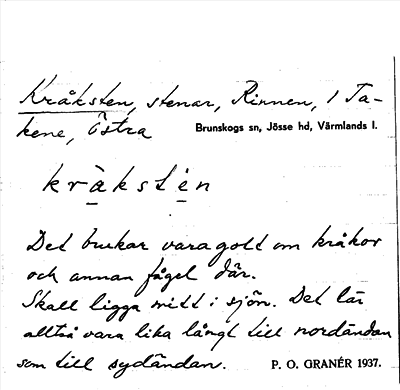 Kråksten, stenar, Rinnen, 1 Ta-
kene, Östra Brunskogs sn, Jösse hd, Värmlands l.
kràkstèn
Det brukar vara gott om kråkor
och annan fågel där.
Skall ligga mitt i sjön. Det lär
alltså vara lika långt till nordändan
som till sydändan. P. O. GRANÉR 1937.